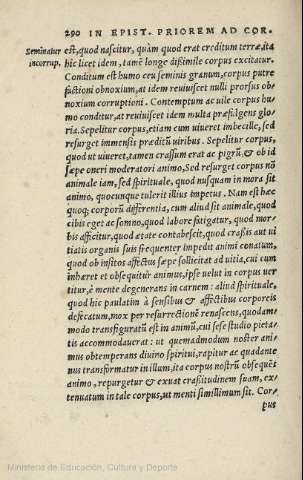 290 IN EPIST. PRIOREM AD COR.
Seminatur est, quod nascitur, quàm quod erat creditum terræ, ita
incorrup. hic licet idem, tamẽ longe dißimile corpus excitatur.
Conditum est humo ceu seminis granum, corpus putre
factioni obnoxium, at idem reuiuiscet nulli prorsus ob-
noxium corruptioni. Contemptum ac uile corpus hu-
mo conditur, at reuiuiscet idem multa præfulgens glo-
ria. Sepelitur corpus, etiam cum uiueret imbecille, sed
resurget immensis præditũ uiribus. Sepelitur corpus,
quod ut uiueret, tamen crassum erat ac pigrũ, & ob id
sæpe oneri moderatori animo, Sed resurget corpus nõ
animale iam, sed spirituale, quod nusquam in mora sit
animo, quocunque tulerit illius impetus. Nam est hæc
quoq; corporũ differentia, cum aliud sit animale, quod
cibis eget ac somno, quod labore fatigatur, quod mor-
bis afficitur, quod ætate contabescit, quod craßis aut ui
tiatis organis suis frequenter impedit animi conatum,
quod ob insitos affectus sæpe sollicitat ad uitia, cui cum
inhæret et obsequitur animus, ipse uelut in corpus uer
titur, è mente degenerans in carnem: aliud spirituale,
quod hic paulatim à sensibus & affectibus corporeis
defecatum, mox per resurrectionẽ renascens, quodam
modo transfiguratũ est in animũ, cui sese studio pieta-
tis accommodauerat: ut quemadmodum noster ani-
mus obtemperans diuino spiritui, rapitur ac quadante
nus transformatur in illum, ita corpus nostrũ obsequẽs
animo, repurgetur & exuat craßitudinem suam, ex-
tenuatum in tale corpus, ut menti simillimum sit. Cor-
pus
Ministerio de Educación, Cultura y Deporte